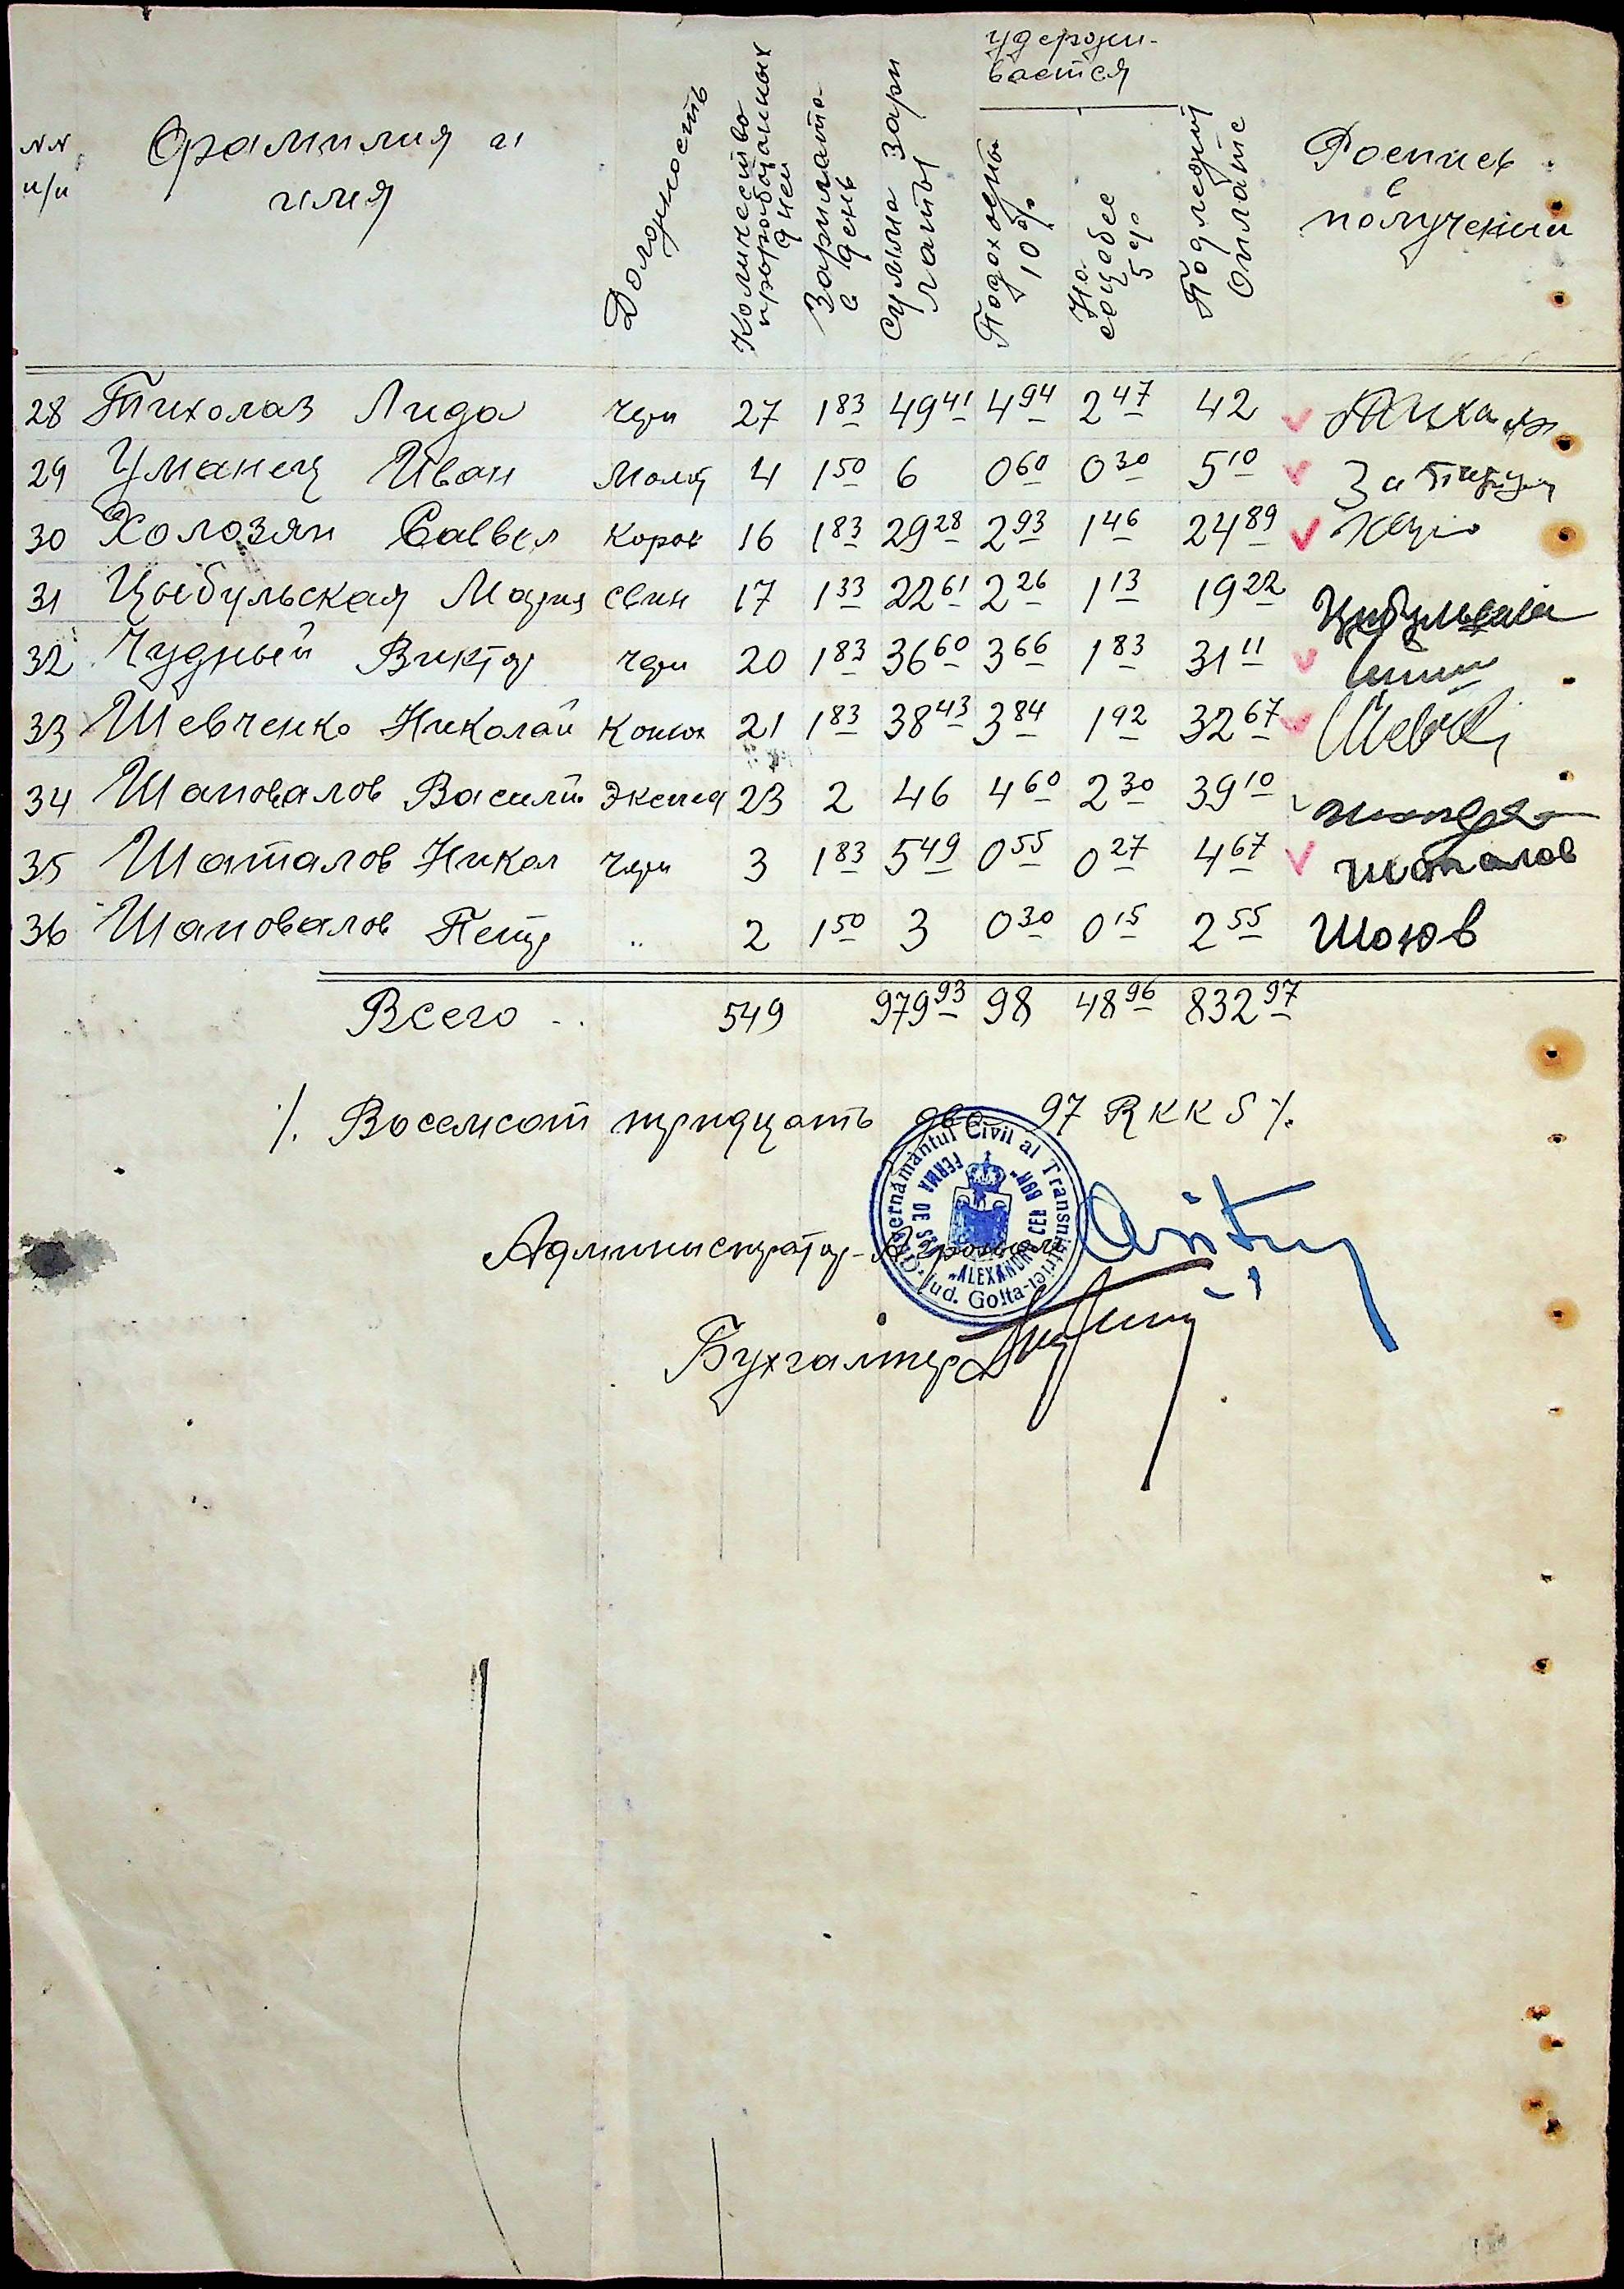 №№ п/п Фамилия и имя Должность Количество проработаных дней Зарплата в день Сумма зарплаты удерживается Подоходный 10% На соцобес 5% Подлежит оплате Роспись в получении
28 Тихолаз Лида чер 27 1 83 49 41 4 94 2 47 42
29 Уманец Иван Молот 4 1 50 6 0 60 0 30 5 10 За
30 Холозян Саввел Коров 16 1 83 29 28 2 93 1 46 24 89
31 Цыбульская Мария свин 17 1 33 22 61 2 26 1 13 19 22 Цибульская
32 Чудный Виктор чер 20 1 83 36 60 3 66 1 83 31 11
33 Шевченко Николай Конюх 21 1 83 38 43 3 84 1 92 32 67
34 Шаповалов Василий Экспед 23 2 46 4 60 2 30 39 10
35 Шаталов Никол чер 3 1 83 5 49 0 55 0 27 4 67 Шаталов
36 Шаповалов Петр " 2 1 50 3 0 30 0 15 2 55
Всего 549 979 93 98 48 96 832 97
/. Восемсот тридцать два 97 RKKS /.
Guvernământul Civil al Transnistriei
Jud. Golta
FERMA DE "ALEXANDRU CEL BUN"
Администратор-Агроном
Бухгалтер